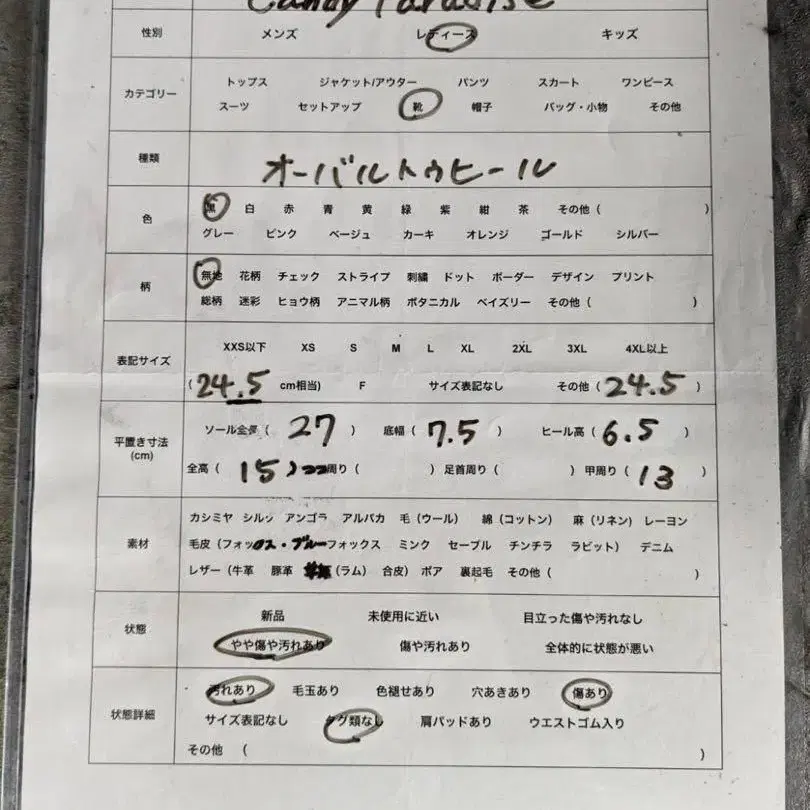 Candy Paradise
性別 メンズ レディース キッズ
カテゴリー トップス ジャケット/アウター パンツ スカート ワンピース
スーツ セットアップ 靴 帽子 バッグ・小物 その他
種類 オーバルトゥヒール
色 黒 白 赤 青 黄 緑 紫 紺 茶 その他 ( )
グレー ピンク ベージュ カーキ オレンジ ゴールド シルバー
柄 無地 花柄 チェック ストライプ 刺繍 ドット ボーダー デザイン プリント
総柄 迷彩 ヒョウ柄 アニマル柄 ボタニカル ペイズリー その他 ( )
表記サイズ XXS以下 XS S M L XL 2XL 3XL 4XL以上
( 24.5 cm相当) F サイズ表記なし その他 ( 24.5 )
平置き寸法 (cm) ソール全長 ( 27 ) 底幅 ( 7.5 ) ヒール高 ( 6.5 )
全高 ( 15 ) 周り ( ) 足首周り ( ) 甲周り ( 13 )
素材 カシミヤ シルク アンゴラ アルパカ 毛 (ウール) 綿 (コットン) 麻 (リネン) レーヨン
毛皮 (フォックス・ブルーフォックス ミンク セーブル チンチラ ラビット) デニム
レザー (牛革 豚革 (ラム) 合皮) ボア 裏起毛 その他 ( )
状態 新品 未使用に近い 目立った傷や汚れなし
やや傷や汚れあり 傷や汚れあり 全体的に状態が悪い
状態詳細 汚れあり 毛玉あり 色褪せあり 穴あきあり 傷あり
サイズ表記なし タグ類なし 肩パッドあり ウエストゴム入り
その他 ( )